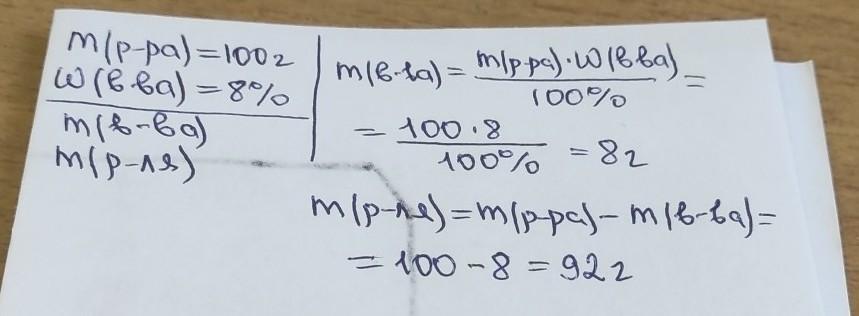 m(р-ра)=100г
ω(в-ва)=8%
m(в-ва)
m(р-ля)
m(в-ва) = m(р-ра)·ω(в-ва) / 100% =
= 100·8 / 100% = 8г
m(р-ля)=m(р-ра)-m(в-ва)=
= 100-8=92г